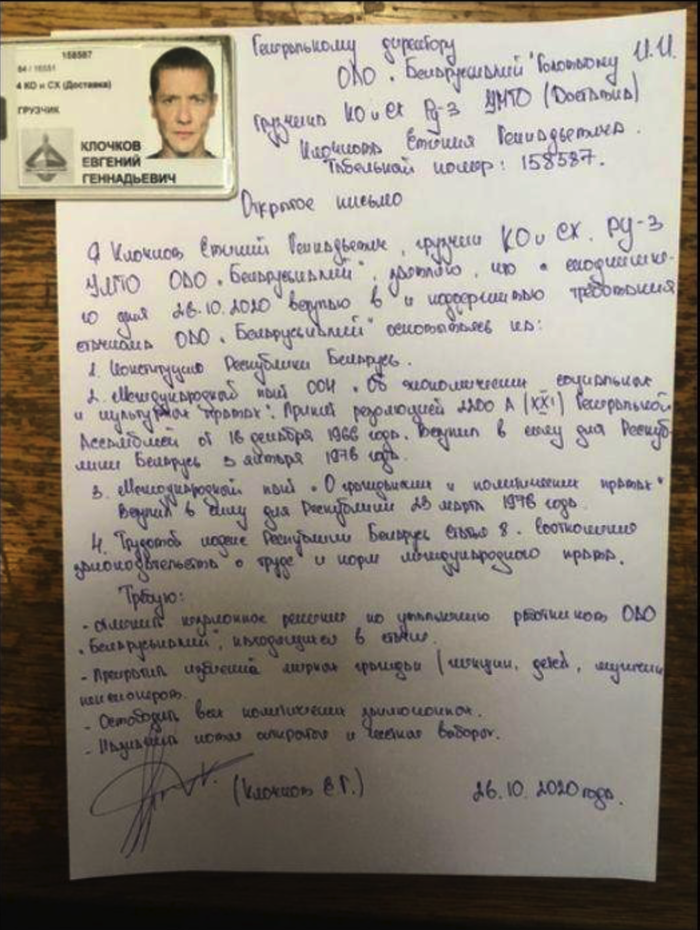 158587
84 / 16551
4 КО и СХ (Доставка)
ГРУЗЧИК
КЛОЧКОВ
ЕВГЕНИЙ
ГЕННАДЬЕВИЧ
Генеральному директору
ОАО "Беларуськалий" Головатому И.И.
Грузчика КО и СХ РУ-3 УМТО (Доставка)
Клочкова Евгения Геннадьевича.
Табельный номер: 158587.
Открытое письмо
Я Клочков Евгений Геннадьевич, грузчик КО и СХ. РУ-3
УМТО ОАО "Беларуськалий", заявляю, что с сегодняшне-
го дня 26.10.2020 вступаю в и поддерживаю требования
стачкома ОАО "Беларуськалий" основываясь на:
1. Конституцию Республики Беларусь.
2. Международный пакт ООН "Об экономических социальных
и культурных правах". Принят резолюцией 2200 А (XXI) Генеральной
Ассамблеей от 16 декабря 1966 года. Вступил в силу для Респуб-
лики Беларусь 3 января 1976 года.
3. Международный пакт "О гражданских и политических правах"
Вступил в силу для Республики 23 марта 1976 года.
4. Трудовой кодекс Республики Беларусь статья 8. "Соотношение
законодательства о труде" и норм международного права.
Требую:
- отменить незаконное решение по увольнению работников ОАО
"Беларуськалий", находящихся в стачке.
- Прекратить избиения мирных граждан (женщин, детей, мужчин
пенсионеров.
- Освободить всех политических заключенных.
- Назначить новые открытые и честные выборы.
(Клочков Е.Г.) 26.10.2020 года.